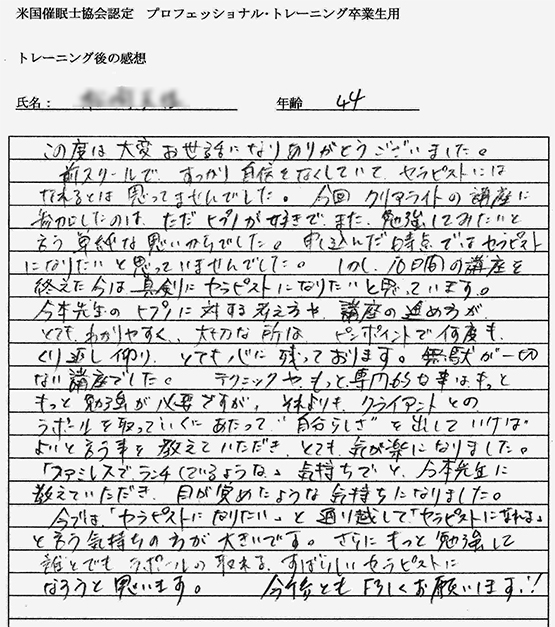 米国催眠士協会認定　プロフェッショナル・トレーニング卒業生用
トレーニング後の感想
氏名：
年齢　44
この度は大変お世話になりありがとうございました。
前スクールで、すっかり自信をなくしていて、セラピストには
なれるとは思ってませんでした。今回クリアライトの講座に
参加したのは、ただヒプノが好きで、また、勉強してみたいと
言う単純な思いからでした。申し込んだ時点ではセラピスト
になりたいと思っていませんでした。しかし、10日間の講座を
終えた今は真剣にセラピストになりたいと思っています。
今本先生のヒプノに対する考え方や、講座の進め方が、
とてもわかりやすく、大切な所はピンポイントで何度も、
くり返し仰り、とても心に残っております。無駄が一切
ない講座でした。テクニックや、もっと専門的な事は、もっと
もっと勉強が必要ですが、それよりも、クライアントとの
ラポールを取っていくにあたって、"自分らしさ"を出していけば
よいと言う事を教えていただき、とても、気が楽になりました。
「ステミレスでランチしているような。」気持ちでと、今本先生に
教えていただき、目が覚めたような気持ちになりました。
今では、「セラピストになりたい。」と通り越して「セラピストになれる」
と言う気持ちの方が大きいです。さらにもっと勉強して
誰とでもラポールの取れる、すばらしいセラピストに
なろうと思います。今後とも宜しくお願いします！